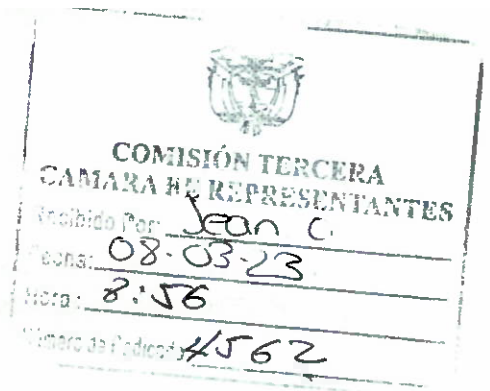 COMISIÓN TERCERA
CAMARA DE REPRESENTANTES
Recibido Por: Jean C.
Fecha: 08-03-23
Hora: 8:56
Número de Radicado 4562